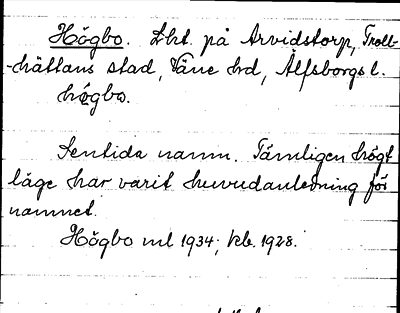 Högbo. Lht. på Arvidstorp, Troll-
-hättans stad, Väne hd, Älfsborgs l.
högbo.
Sentida namn. Tämligen högt
läge har varit huvudanledning för
namnet.
Högbo ml 1934; kb. 1928.